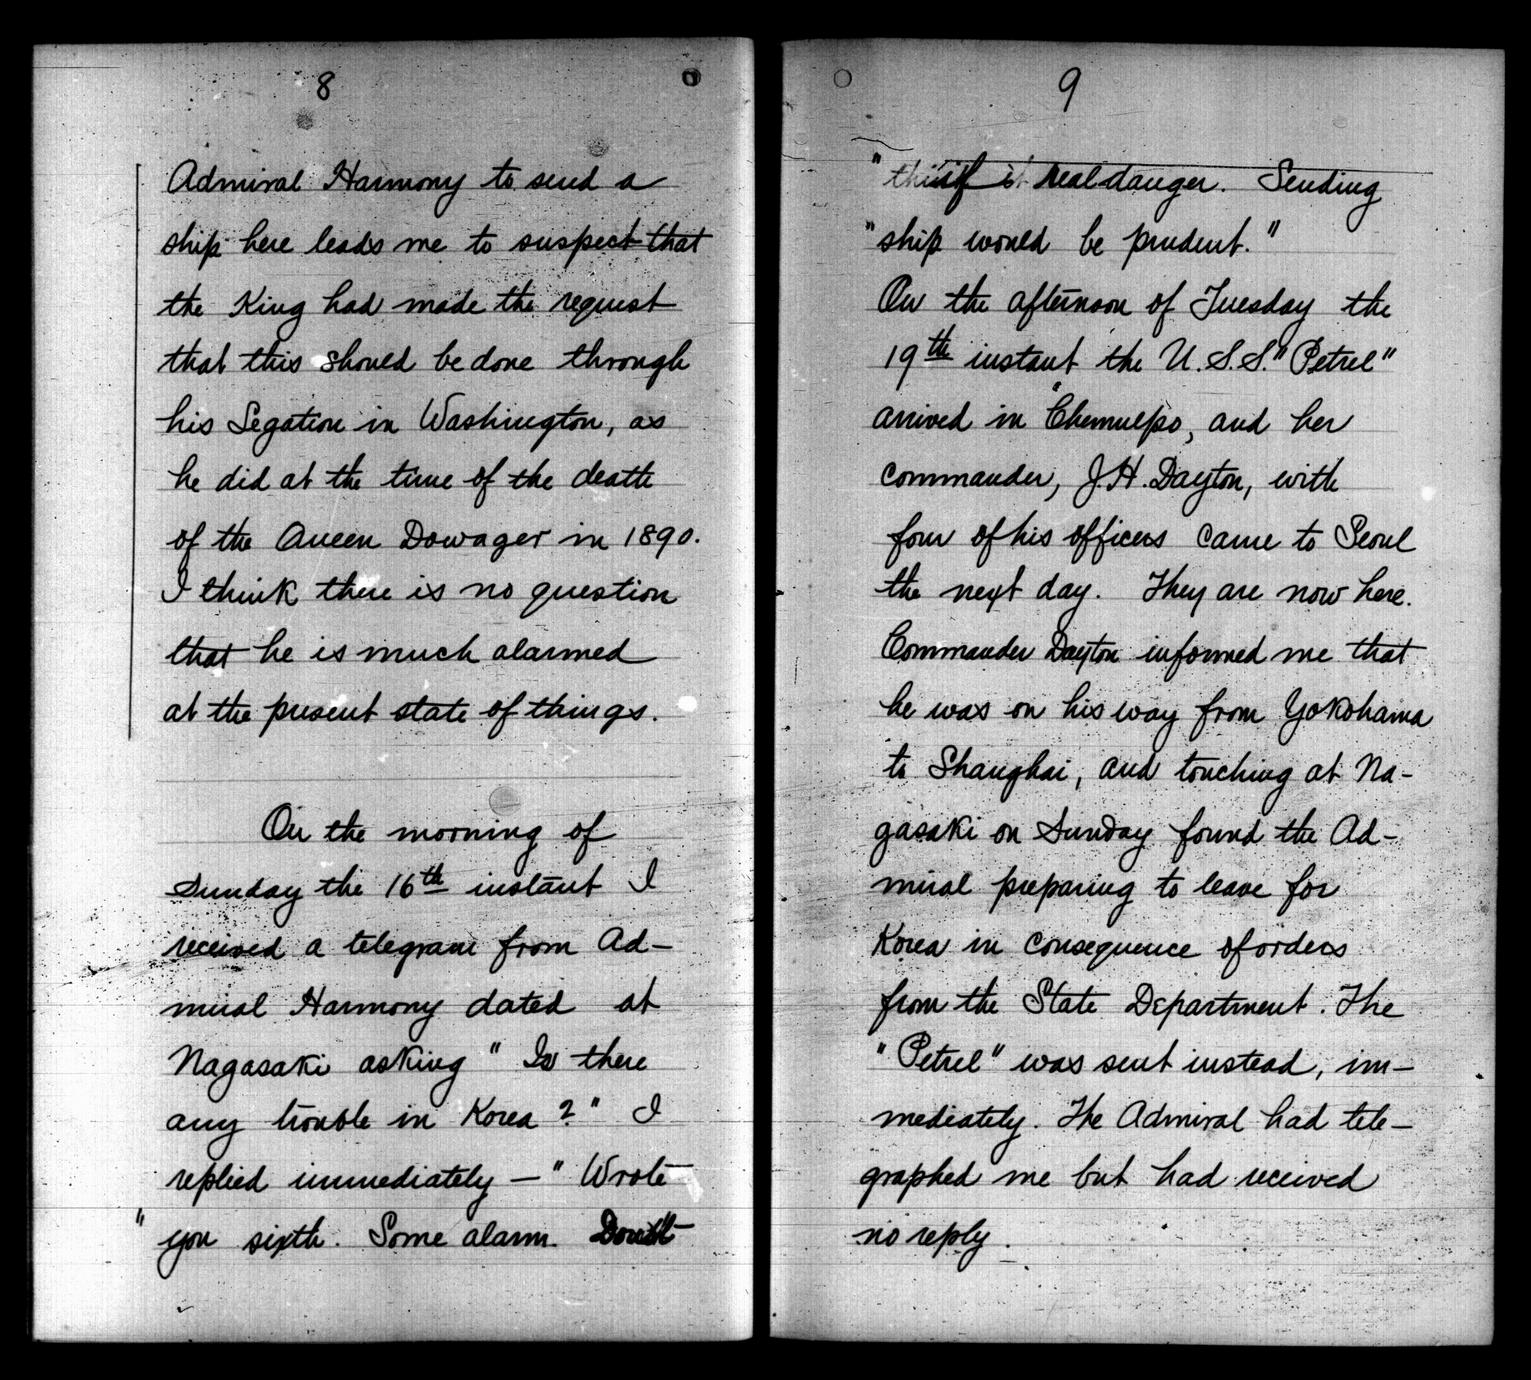 8
Admiral Harmony to send a
ship here leads me to suspect that
the King had made the request
that this should be done through
his Legation in Washington, as
he did at the time of the death
of the Queen Dowager in 1890.
I think there is no question
that he is much alarmed
at the present state of things.
On the morning of
Sunday the 16th instant I
received a telegram from Ad-
miral Harmony dated at
Nagasaki asking " Is there
any trouble in Korea ? " I
replied immediately — " Wrote
" you sixth. Some alarm.
9
" real danger. Sending
" ship would be prudent. "
On the afternoon of Tuesday the
19th instant the U.S.S. "Petrel"
arrived in Chemulpo, and her
commander, J.H. Dayton, with
four of his officers came to Seoul
the next day. They are now here.
Commander Dayton informed me that
he was on his way from Yokohama
to Shanghai, and touching at Na-
gasaki on Sunday found the Ad-
miral preparing to leave for
Korea in consequence of orders
from the State Department. The
" Petrel " was sent instead, im-
mediately. The Admiral had tele-
graphed me but had received
no reply.